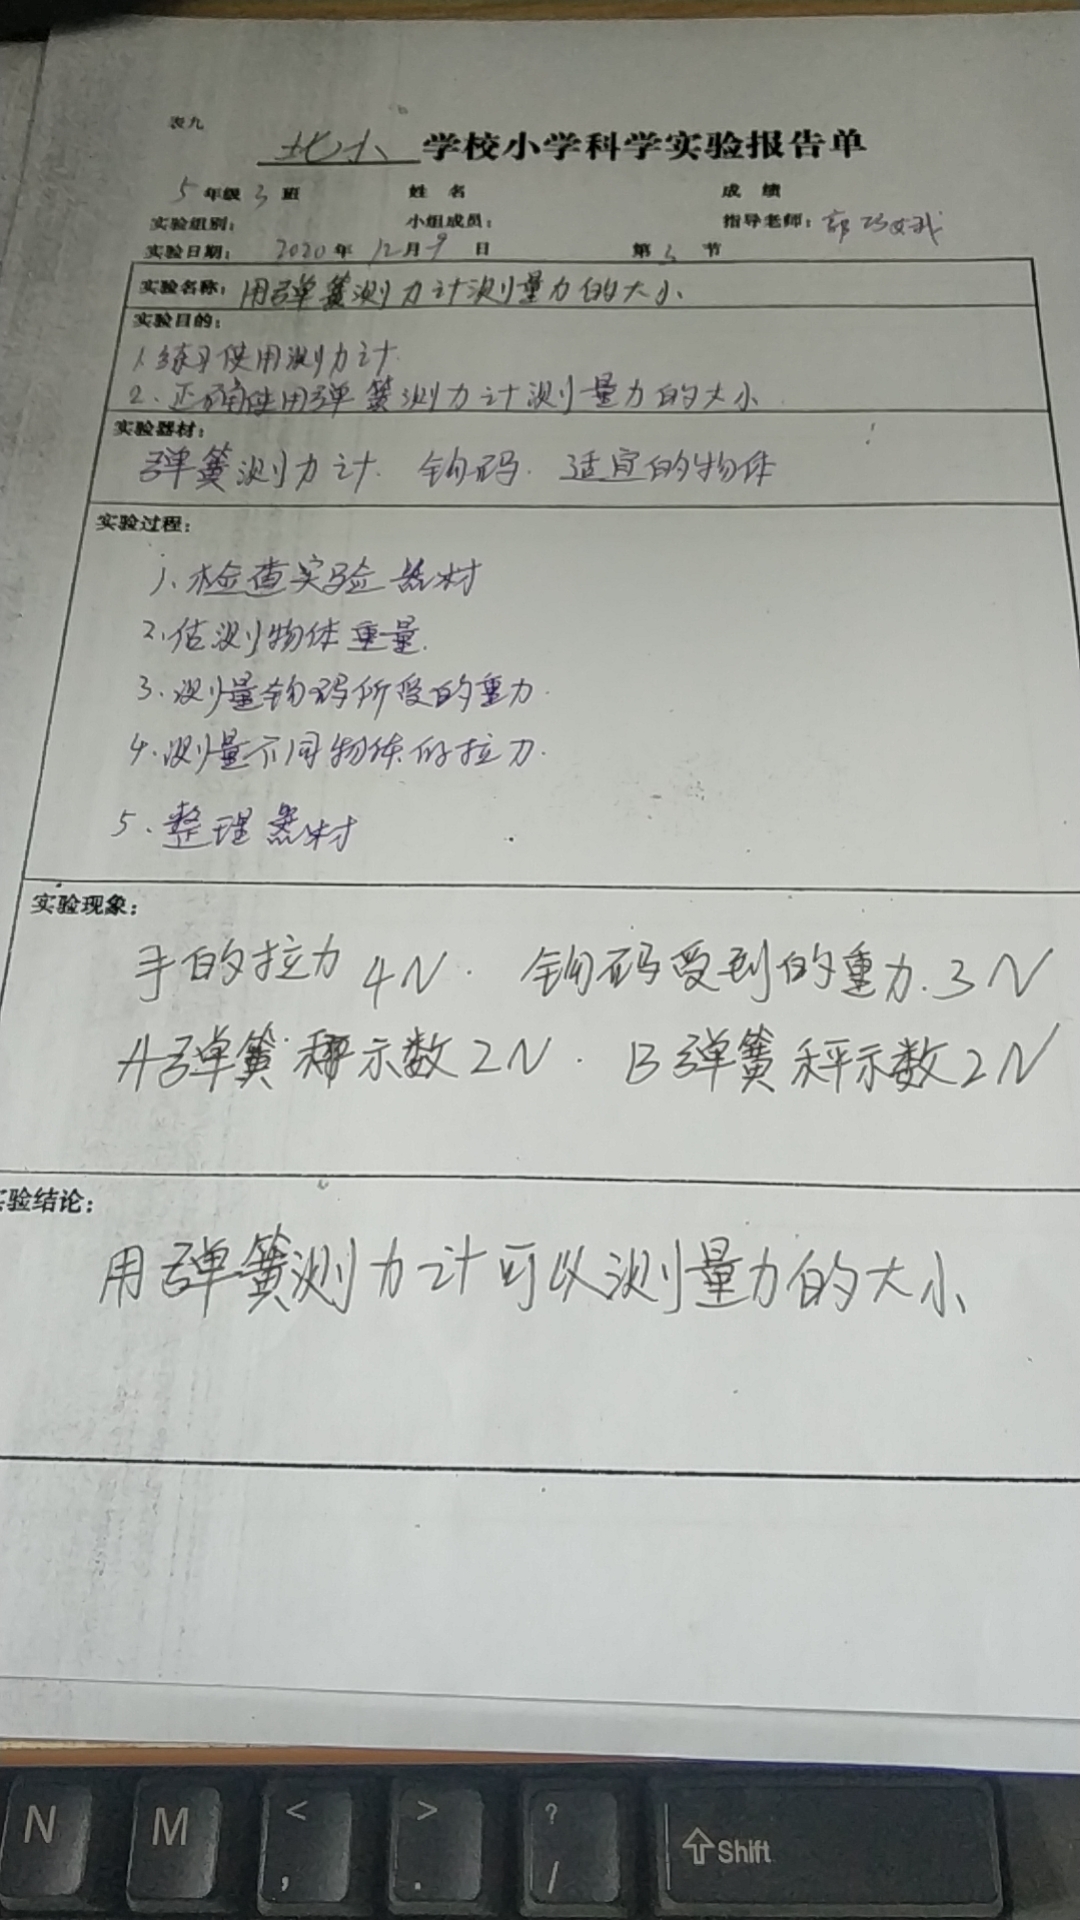 表九
北小 学校小学科学实验报告单
5 年级 3 班 姓 名 成 绩
实验组别： 小组成员： 指导老师：郭巧
实验日期： 2020 年 12 月 9 日 第 3 节
实验名称：用弹簧测力计测量力的大小
实验目的：
1.练习使用测力计.
2.正确使用弹簧测力计测量力的大小.
实验器材：
弹簧测力计. 钩码. 适宜的物体
实验过程：
1.检查实验器材
2.估测物体重量.
3.测量钩码所受的重力.
4.测量不同物体的拉力.
5.整理器材
实验现象：
手的拉力 4N. 钩码受到的重力.3N
A弹簧秤示数2N. B弹簧秤示数2N
验结论：
用弹簧测力计可以测量力的大小
N M < , > . ? / Shift